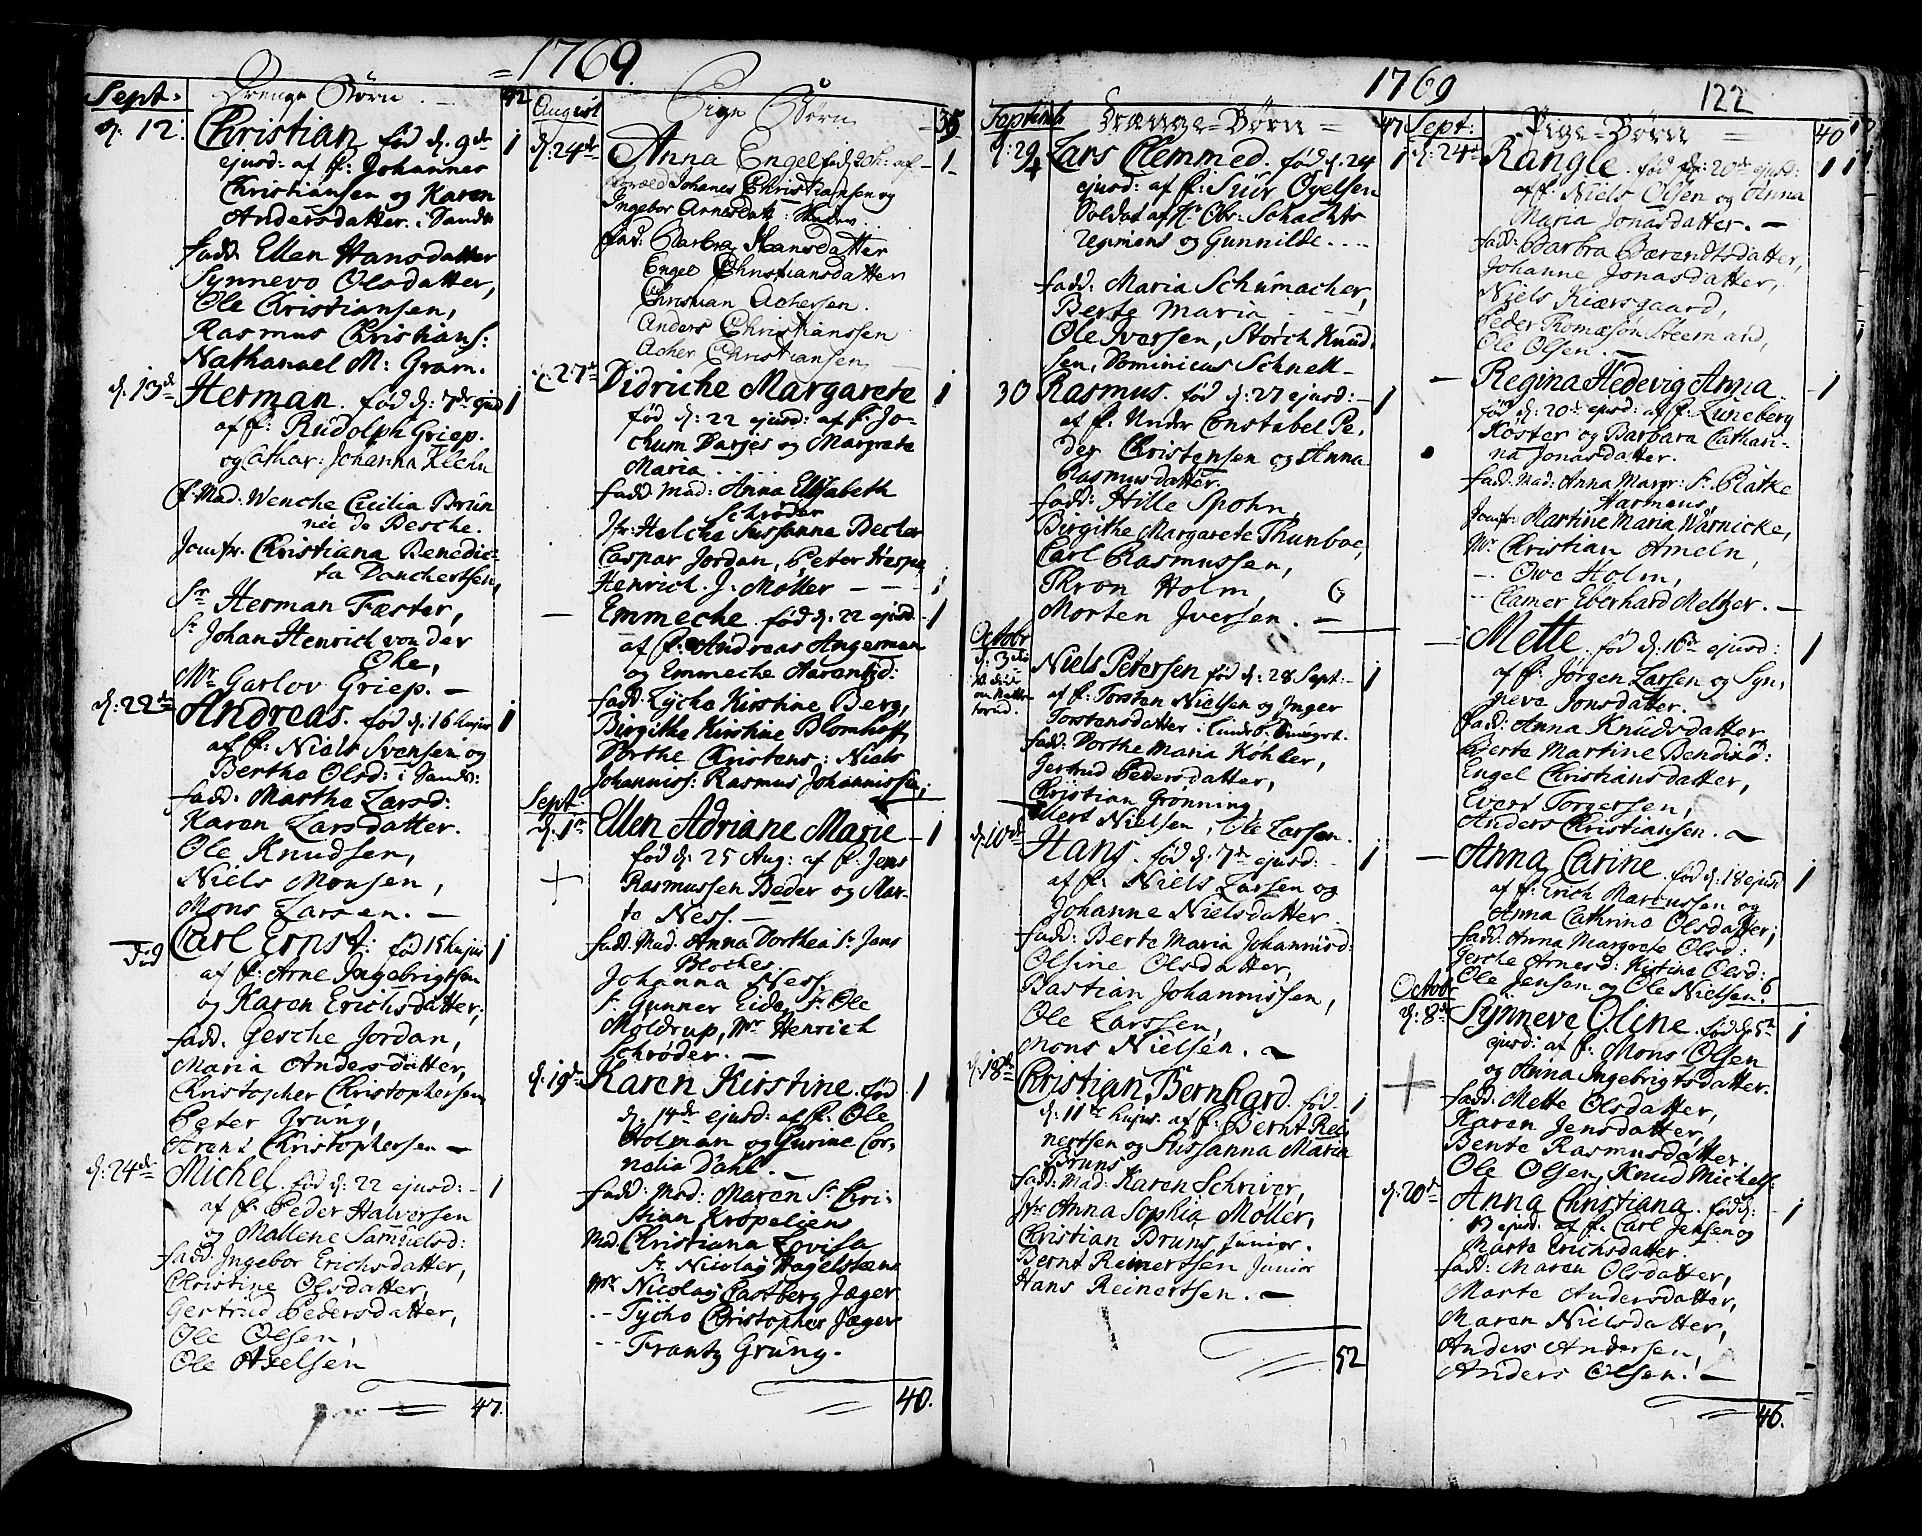 = 1769.
Sept:
Drenge Børn.
42
d: 12.
Christian fød d: 9de 1
ejusd: af f: Johannes
Christiansen og Karen
Andersdatter i Sandv
fadd: Ellen Hansdatter
Synnevo Olsdatter,
Ole Christiansen,
Rasmus Christians:
Nathanael M: Gram.
d: 13de Herman. fød d: 7de ejusd 1
af f: Rudolph Griep.
og Cathar: Johanna Klehn
f: Mad. Wenche Cecilia Brun
née de Besche.
Jomfr. Christiana Benedic-
ta Danchertsen,
Sr Herman Fæster,
Sr Johan Henrich von der
Ehe,
Mr Garlov Griep. —
d: 22de Andreas. fød d: 16 hujus 1
af f: Niels Svensen og
Bertha Olsd: i Sandv:
fadd. Martha Larsd:
Karen Larsdatter.
Ole Knudsen,
Niels Monsen,
Mons Larsen. —
Carl Ernst: fød 15 hujus 1
af f: Arne Ingebrigtsen
og Karen Erichsdatter;
fadd: Gesche Jordan,
Maria Andersdatter,
Christopher Christophersen
Peter Grung,
Arent Christophersen —
d: 24de Michel. fød d: 22 ejusd: - 1
af f: Peder Halversen
og Mallene Samuelsd:
fadd. Ingebor Erichsdatter,
Christine Olsdatter,
Gertrud Pedersdatter,
Ole Olsen,
Ole Axelsen
47.
August
Pige Børn
35
d: 24de Anna Engel fød 20 h: af 1
Johanes Christiansen og
Ingebor Arnesdatt:
fad: Barbra Hansdatter
Engel Christiansdatter
Christian Achersen.
Anders Christianssen
Acher Christiansen
d: 27de Didriche Margarete 1
fød d: 22 ejusd: af f: Jo-
chum Darjes og Margrete
Maria
fadd. Mad: Anna Elisabeth
Schrøder
Jfr: Helche Sussanna Becher
Caspar Jordan, Peter Hespe
Henrich J: Møller — — 1
— Emmeche. fød d: 22 ejusd. 1
af f: Andreas Angerman
og Emmeche Aarentzd:
fadd: Lyche Kirstine Berg,
Birgithe Kirstine Blomhoff,
Dorthe Christens: Niels
Johanniss: Rasmus Johannissen;
Sept:
d: 1te Ellen Adriane Marie 1
fød d: 25 Aug: af f: Jens
Rasmussen Beder og Mar-
te Ness. —
fadd. Mad. Anna Dorthea Sr. Jens
Blothes
Johanna Ness.
Sr. Gunner Eide, Sr. Ole
Moldrup, Mr Henrich
Schrøder. —
d: 19de Karen Kirstine. fød 1
d. 14de ejusd: af f: Ole
Holman og Gurine Cor-
nelia Dahl. —
fadd: Mad: Maren Sr. Chri-
stian Krøpeliens
Mad. Christiana Lovisa
Sr. Nicolay Hagelsteens
Mr Nicolay Castberg Jæger
-- Tycho Christopher Jæger
-- Frantz Grung.
40.
1769
122
Septembr
Drænge-Børn =
47
d: 29 Lars Clemmed. fød d: 24 1
ejusd: af f: Siur Ogelsen
Soldat af Hr Obr: Schachts
regimens og Gunnilde...
fadd: Maria Schumacher,
Berte Maria
Ole Iversen, Storch Knud-
sen, Dominicus Schnell—
30 Rasmus. fød d: 27 ejusd: 1
af f. Under Constabel Pe-
der Christensen og Anna
Rasmusdatter.
fadd: Hille Spohn,
Birgithe Margarete Thunboe,
Carl Rasmussen,
Thron Holm, 6
Morten Iversen. —
Octobr
d: 3die
Niels Petersen fød d: 28 Sept: 1
af f: Torsten Nielsen og Inger
Torstensdatter.
fadd: Dorthe Maria Köhler,
Gertrud Pedersdatter,
Christian Grønning,
Ellert Nielsen, Ole Larsen.
d: 10de Hans. fød d: 7de ejusd: 1
af f: Niels Larsen og
Johanne Nielsdatter
fadd: Berte Maria Johannisd:
Olsine Olsdatter,
Bastian Johannissen,
Ole Larssen,
Mons Nielsen.
d: 18de Christian Bernhard. fød 1
d. 11te hujus. af f: Bernt Rei-
nertsen og Sussanna Maria
Bruns
fadd: Mad: Karen Schriver,
Jfr. Anna Sophia Møller,
Christian Bruns junior.
Bernt Reinertsen Junior
Hans Reinertsen. —
52
Sept:
Pige-Børn =
40
d: 24de Rangle. fød d: 20de ejusd: 1
af f: Niels Olsen og Anna
Maria Jonasdatter. —
fadd: Barbra Barendtsdatter,
Johanne Jonasdatter,
Niels Kiærsgaard,
Peder Thomæson Steenwand,
Ole Olsen. —
— Regina Hedevig Anna 1
fød d: 20de ejusd: af f: Luneberg
Koster og Barbara Cathari-
na Jonasdatter.
fadd: Mad: Anna Margr: Sr. Blatke
Harmens
Jomfr: Martine Maria Warnicke,
Mr Christian Ameln,
-- Owe Holm,
-- Clamer Eberhard Meltzer. —
— Mette. fød d: 16de ejusd: 1
af f: Jørgen Larsen og Syn-
neve Jonsdatter.
fadd: Anna Knudsdatter
Berte Martine Bendixd:
Engel Christiansdatter,
Evert Torgersen,
Anders Christiansen.
— Anna Carine. fød d: 18 ejusd 1
af f: Erich Marcussen og
Anna Cathrine Olsdatter;
fadd: Anna Margrete Olsd:
Gerche Arnesd: Kistina Olsd:
Ole Jensen og Ole Nielsen. 6
Octobr
d: 8de Synneve Oline. fød d: 5te 1
ejusd: af f: Mons Olsen
og Anna Ingebrigtsdatter.
fadd: Mette Olsdatter,
Karen Jensdatter,
Bente Rasmusdatter
Ole Olsen, Knud Michels:
d: 20de Anna Christiana. fød d: 1
17 ejusd. af f: Carl Jensen og
Marte Erichsdatter.
fadd: Maren Olsdatter,
Marte Andersdatter,
Maren Nielsdatter,
Anders Andersen,
Anders Olsen. —
46.